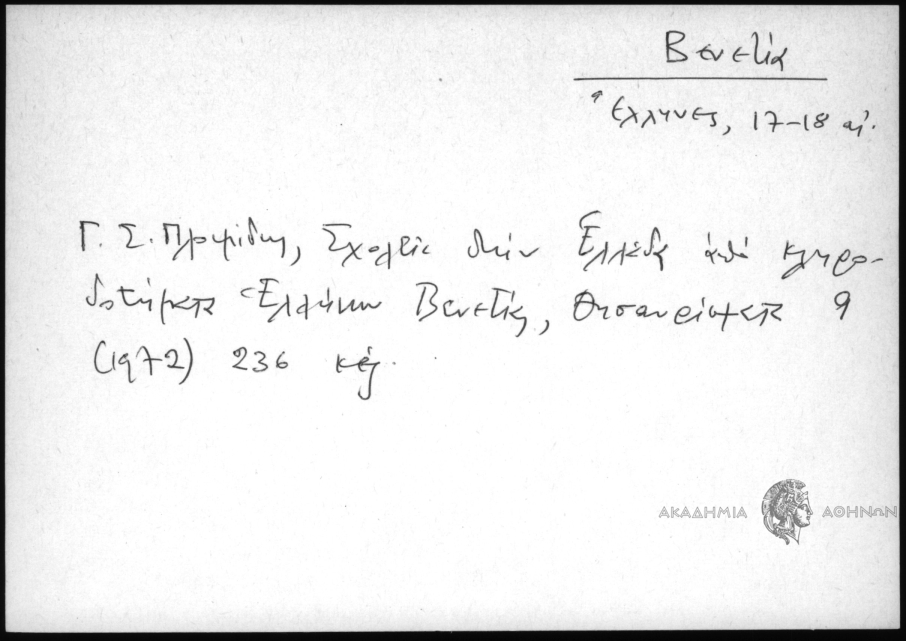 Βενετία
Ἕλληνες, 17-18 αἰ.
Γ. Σ. Πλουμίδης, Σχολεῖα στὴν Ἑλλάδα ἀπὸ κληρο-
δοτήματα Ἑλλήνων Βενετίας, Θησαυρίσματα 9
(1972) 236 κἑξ.
ΑΚΑΔΗΜΙΑ ΑΘΗΝΩΝ